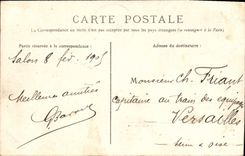 CARTE POSTALE
La Correspondance au recto n'est pas acceptée par tous les pays étrangers (se renseigner à la Poste)
Partie réservée à la correspondance
Adresse du destinataire
Salon 8 fév. 1905
Meilleures amitiés
Monsieur Ch. Friant
Capitaine au train des équipages
Versailles
Seine & Oise